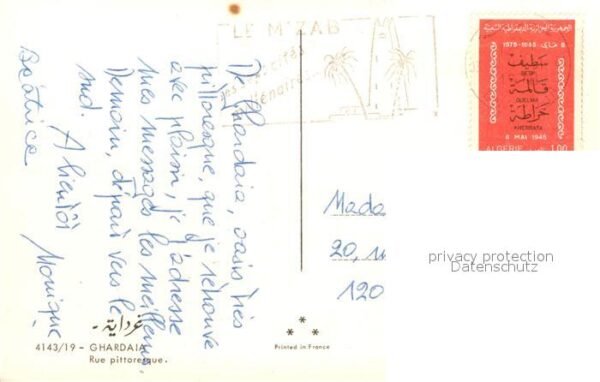 LE M'ZAB
ses cités
millénaires
De Ghardaia, oasis très
pittoresque, que je retrouve
avec plaisir, j'adresse
mes messages les meilleurs
Demain, départ vers le
sud.
A bientôt
Monique
Béatrice
الجمهورية الجزائرية الديمقراطية الشعبية
1975-1945 ماي 8
سطيف
SETIF
قالمة
GUELMA
خراطة
KHERRATA
8 MAI 1945
ALGERIE 1,00
Mada
20,
120
privacy protection
Datenschutz
غرداية
4143/19 - GHARDAIA
Rue pittoresque.
Printed in France